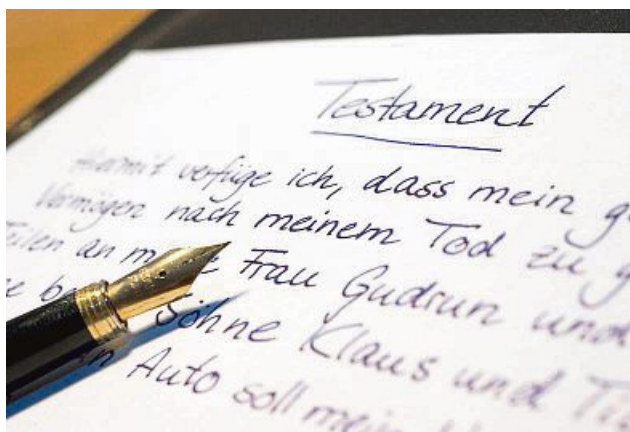 Testament
Hiermit verfüge ich, dass mein g
Vermögen nach meinem Tod zu g
Teilen an m e Frau Gudrun und
e b Söhne Klaus und Ti
n Auto soll mein